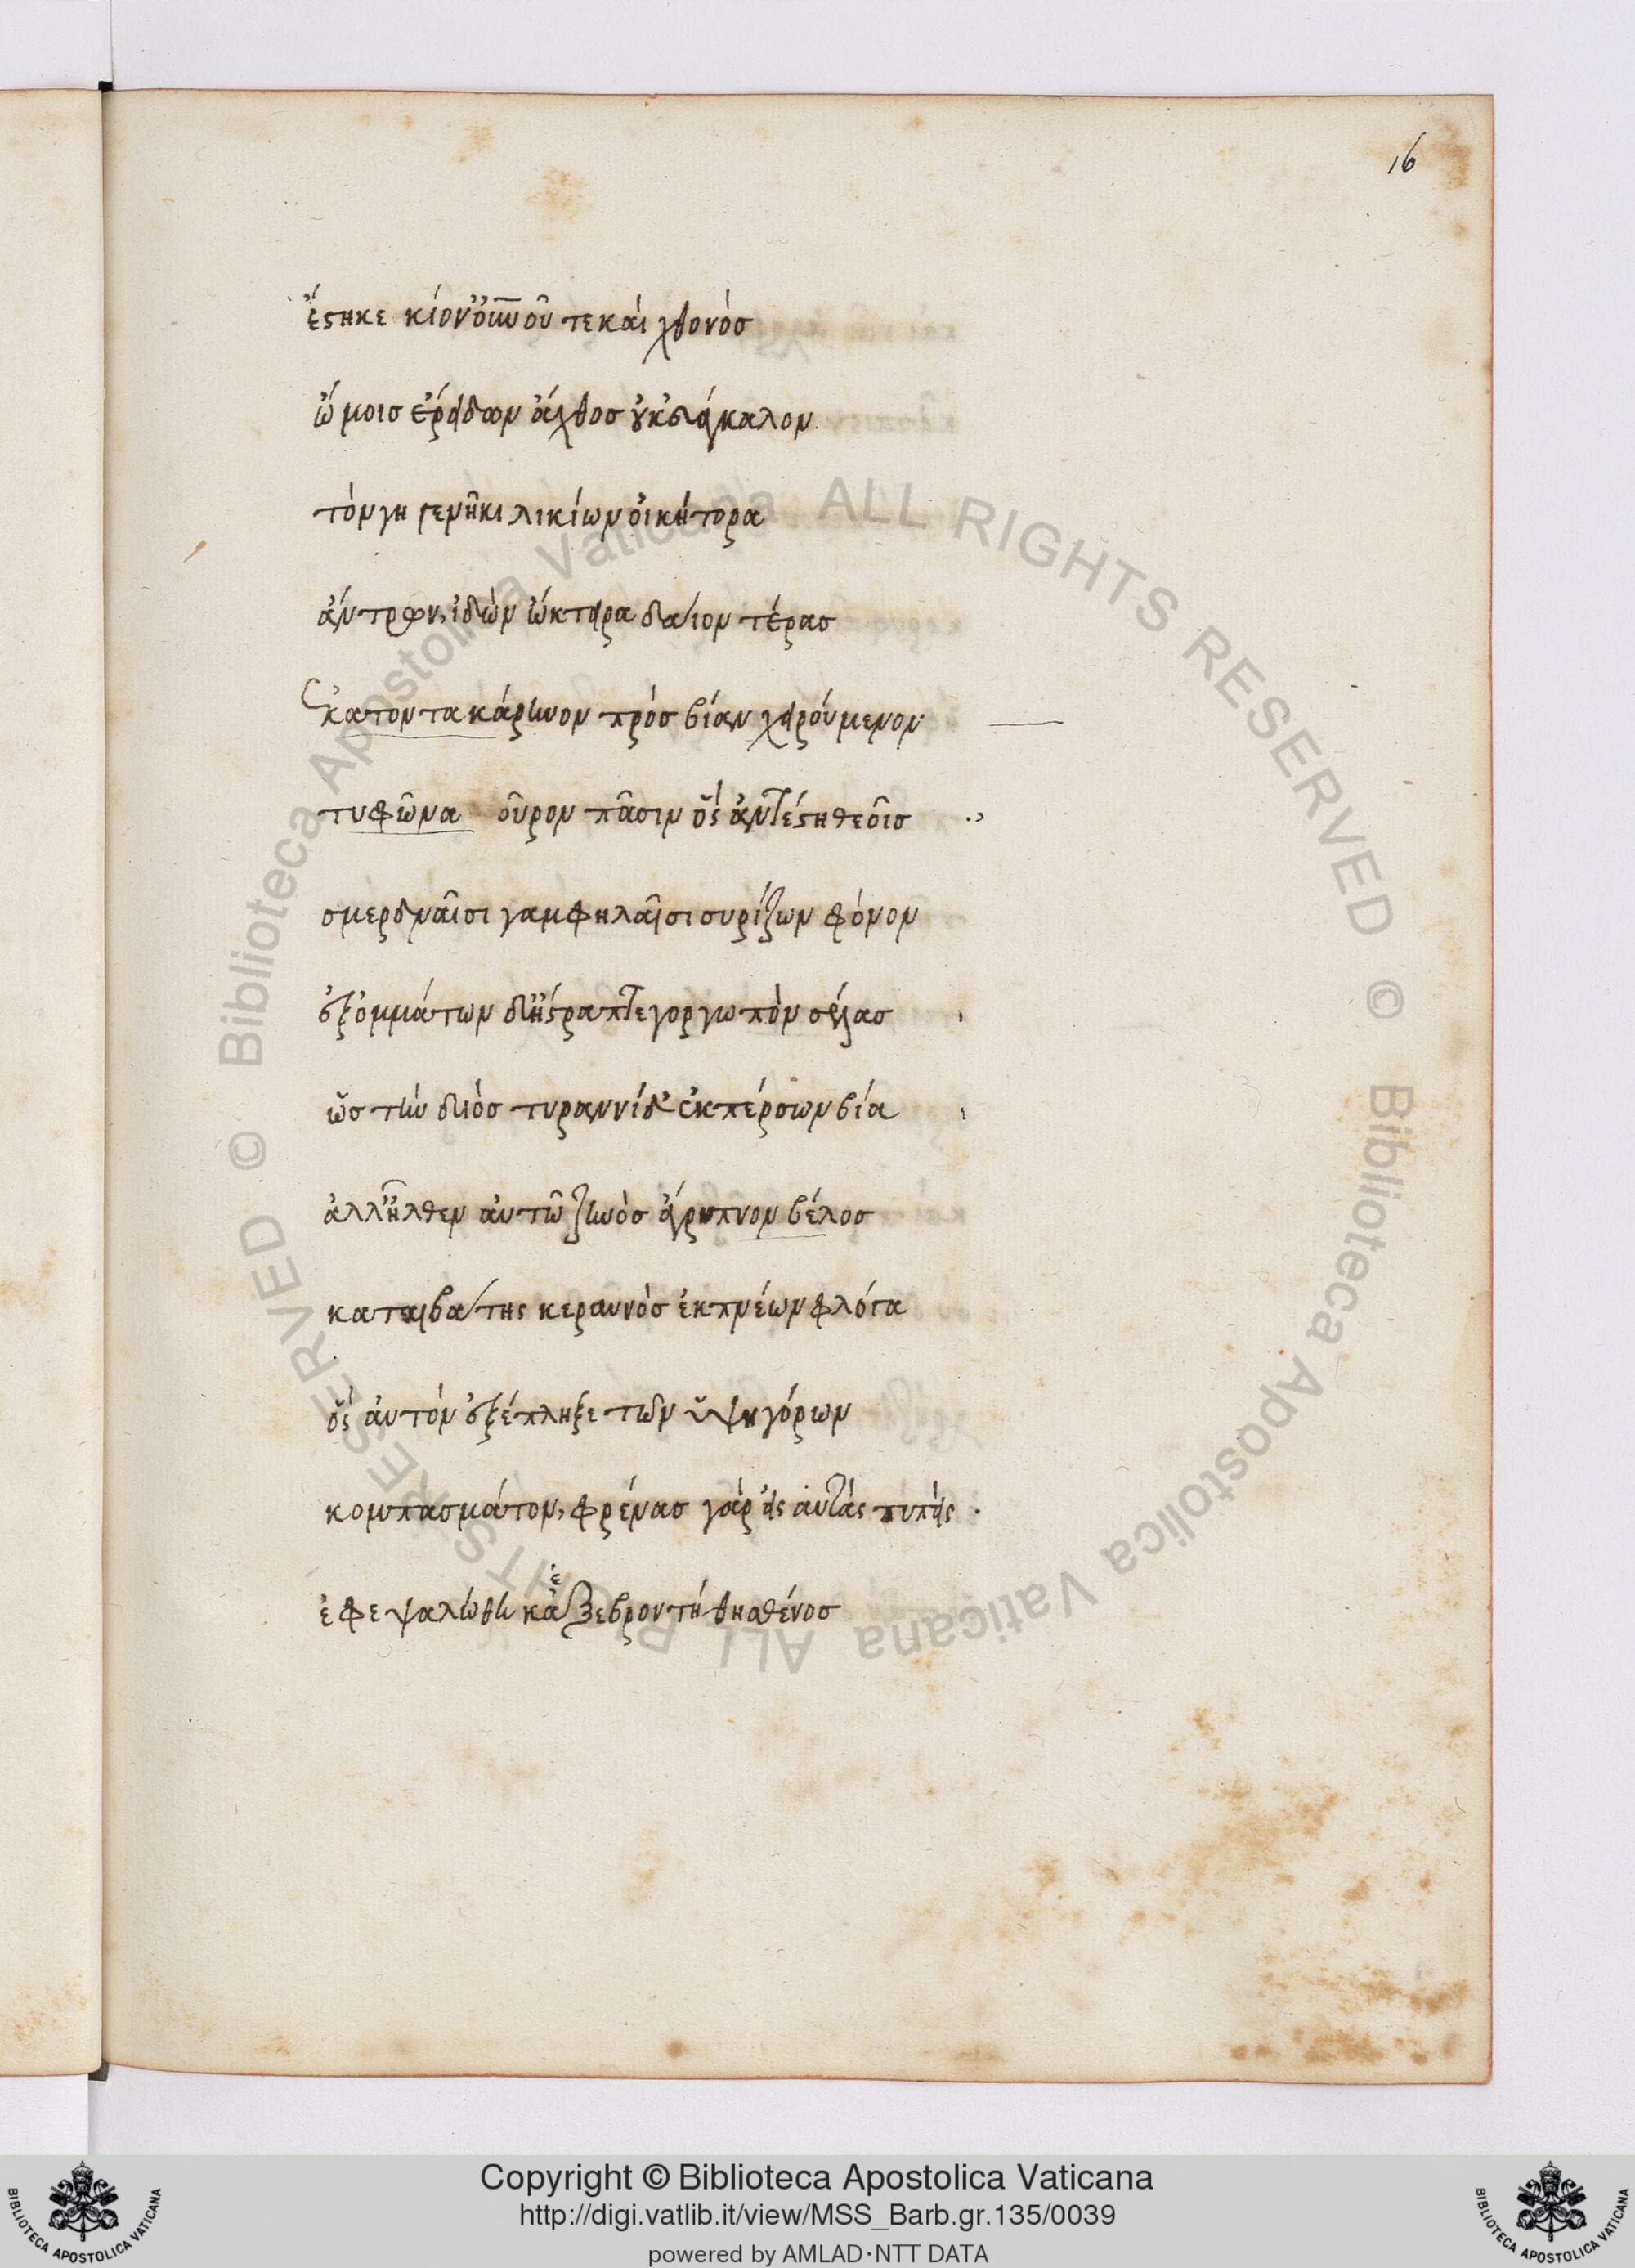 16
ἕστηκε κίον' ὀυνοῦ τε καὶ χθονὸσ
ὤμοισ ἐρείδων ἄχθοσ οὐκ ἐυάγκαλον.
τὸν γηγενῆ κιλικίων ὀικήτορα
ἄντρων, ἰδὼν ὤκτειρα δάϊον τέρασ
ἑκατοντακάρηνον πρὸσ βίαν χειρούμενον
τυφῶνα θοῦρον πᾶσιν ὃς ἀντέστη θεοῖσ
σμερδναῖσι γαμφηλαῖσι συρίζων φόνον
ἐξ ὀμμάτων δ' ἤστραπτε γοργωπὸν σέλασ
ὡσ τὴν διὸσ τυραννίδ' ἐκπέρσων βία
ἀλλ' ἦλθεν ἀυτῶ ζηνὸσ ἄγρυπνον βέλοσ
καταιβάτης κεραυνὸσ ἐκπνέων φλόγα
ὃς ἀυτὸν ἐξέπληξε τῶν ὑψηγόρων
κομπασμάτον, φρένασ γὰρ εἰς ἀυτὰς τυπεὶς
ἐφεψαλώθη κἀξεβροντήθη σθένοσ
ἐ
Copyright © Biblioteca Apostolica Vaticana
http://digi.vatlib.it/view/MSS_Barb.gr.135/0039
powered by AMLAD·NTT DATA
BIBLIOTECA APOSTOLICA VATICANA
BIBLIOTECA APOSTOLICA VATICANA
© Biblioteca Apostolica Vaticana ALL RIGHTS RESERVED © Biblioteca Apostolica Vaticana ALL RIGHTS RESERVED